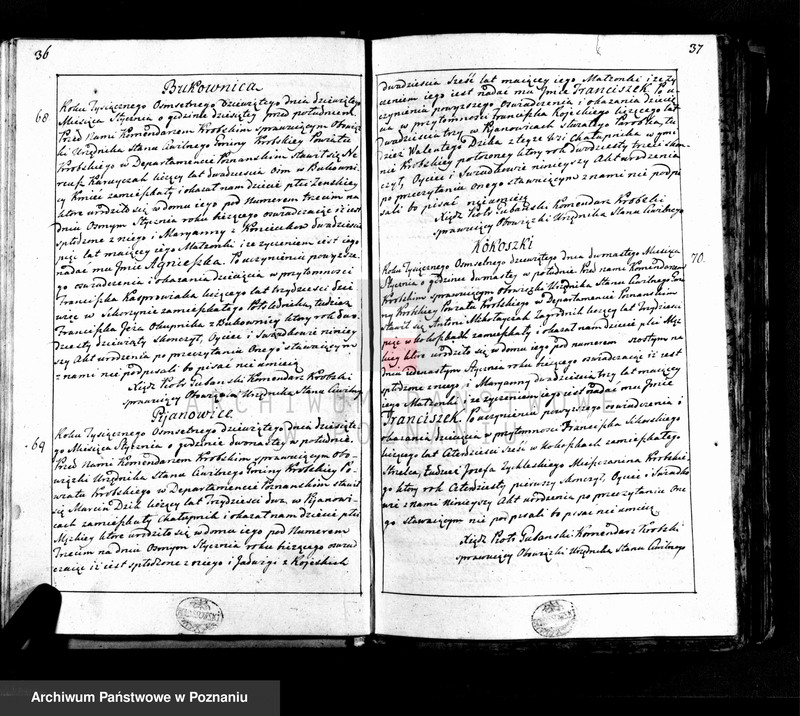 36
Bukownica
68
Roku Tysiącznego Osmsetnego Dziewiątego dnia dziewiątego
Miesiąca Stycznia o godzinie dziesiątey przed południem
Przed Nami Komendarzem Krobskim sprawuiącym Obowiąz
ki Urzędnika Stanu Cywilnego Gminy Krobskiey Powiatu
Krobskiego w Departamencie Poznanskim Stawił się
Karwczak liczący lat dwadziescia Osm w Bukowni
cy Kmieć zamieszkały i okazał nam dziecię płci Zenskiey
ktore urodziło się w domu iego pod Numerem trzecim na
dniu Osmym Stycznia roku bieżącego oswiadczaiąc iż iest
spłodzone z niego i Maryanny z dwadziescia
pięć lat maiącey iego Małżonki i ze życzeniem iest iego
nadać mu Imie Agnieszka. Po uczynieniu powyzsze
go oswiadczenia i okazania dziecięcia w przytomności
Franciszka Kasprowiaka liczącego lat trzydziesci dzie
więc w zamieszkałego tudziesz
Franciszka Jeża Chałupnika z Bukownicy który rok dwu
dziesty dziewiąty skonczył, Oyciec i Swiadkowie niniey
szy Akt urodzenia po przeczytaniu Onego stawaiącym
z nami nie podpisali bo pisać nie umieią
Xiądz Piotr Gubanski Komendarz Krobski
sprawuiący Obowiązki Urzędnika Stanu Cywilnego
Pijanowice
69
Roku Tysiącznego Osmsetnego dziewiątego dnia dziesiąte
go Miesiąca Stycznia o godzinie dwunastey w południe
Przed Nami Komendarzem Krobskim sprawuiącym Obo
wiązki Urzędnika Stanu Cywilnego Gminy Krobskiey Po
wiatu Krobskiego w Departamencie Poznanskim stawił
się Marcin Dzik liczący lat Trzydziesci dwa w Pijanowi
cach zamieszkały Chałupnik i okazał nam dziecie płci
Męzkiey ktore urodziło się w domu iego pod Numerem
Trzecim na dniu Osmym Stycznia roku bieżącego oswiad
czaiąc iż iest spłodzone z niego i Jadwigi z Kojeskich
37
dwadziescia Sześć lat maiącey iego Małżonki i ze ży
czeniem iego iest nadać mu Imie Franciszek Po u
czynieniu powyzszego oswiadczenia i okazania dziecię
cia w przytomności Franciszka Kojeskiego liczącego lat
dwadziescia trzy w Pijanowicach Parobka, tu
dziesz Walentego Dzika z teyże wsi Chałupnika w gmi
nie Krobskiey położoney który rok dwudziesty trzeci skon
czył, Oyciec i Swiadkowie ninieyszy Akt urodzenia
po przeczytaniu onego stawaiącym z nami nie podpi
sali bo pisać nieumieią
Xiądz Piotr Gubanski Komendarz Krobski
sprawuiący Obowiązki Urzędnika Stanu Cywilnego
Kokoszki
70.
Roku Tysiącznego Osmsetnego dziewiątego dnia dwunastego Miesiąca
Stycznia o godzinie dwunastey w południe Przed nami Komendarzem
Krobskim sprawuiącym Obowiązki Urzędnika Stanu Cywilnego Gmi
ny Krobskiey Powiatu Krobskiego w Departamencie Poznanskim
Stawił się Antoni Mikołayczak Zagrodnik liczący lat Trzydziesci
pięć w Kokoszkach zamieszkały i okazał nam dziecie płci Męz
kiey ktore urodziło się w domu iego pod numerem szostym na
dniu iedenastym Stycznia roku bieżącego oswiadczaiąc iż iest
spłodzone z niego i Maryanny dwadziescia trzy lat maiącey
iego Małżonki i ze życzeniem iego iest nadać mu Imie
Franciszek Po uczynieniu powyzszego oswiadczenia i
okazania dziecięcia w przytomności Franciszka Sikorskiego
liczącego lat Czterdziesci Sześć w Kokoszkach zamieszkałego
Strzelca, Tudziesz Jozefa Mieszczanina Krobskie
go który rok Czterdziesty pierwszy skonczył, Oyciec i Swiadko
wie z nami ninieyszy Akt urodzenia po przeczytaniu One
go stawaiącym nie podpisali bo pisać nie umieią
Xiądz Piotr Gubanski Komendarz Krobski
sprawuiący Obowiązki Urzędnika Stanu Cywilnego
Archiwum Państwowe w Poznaniu